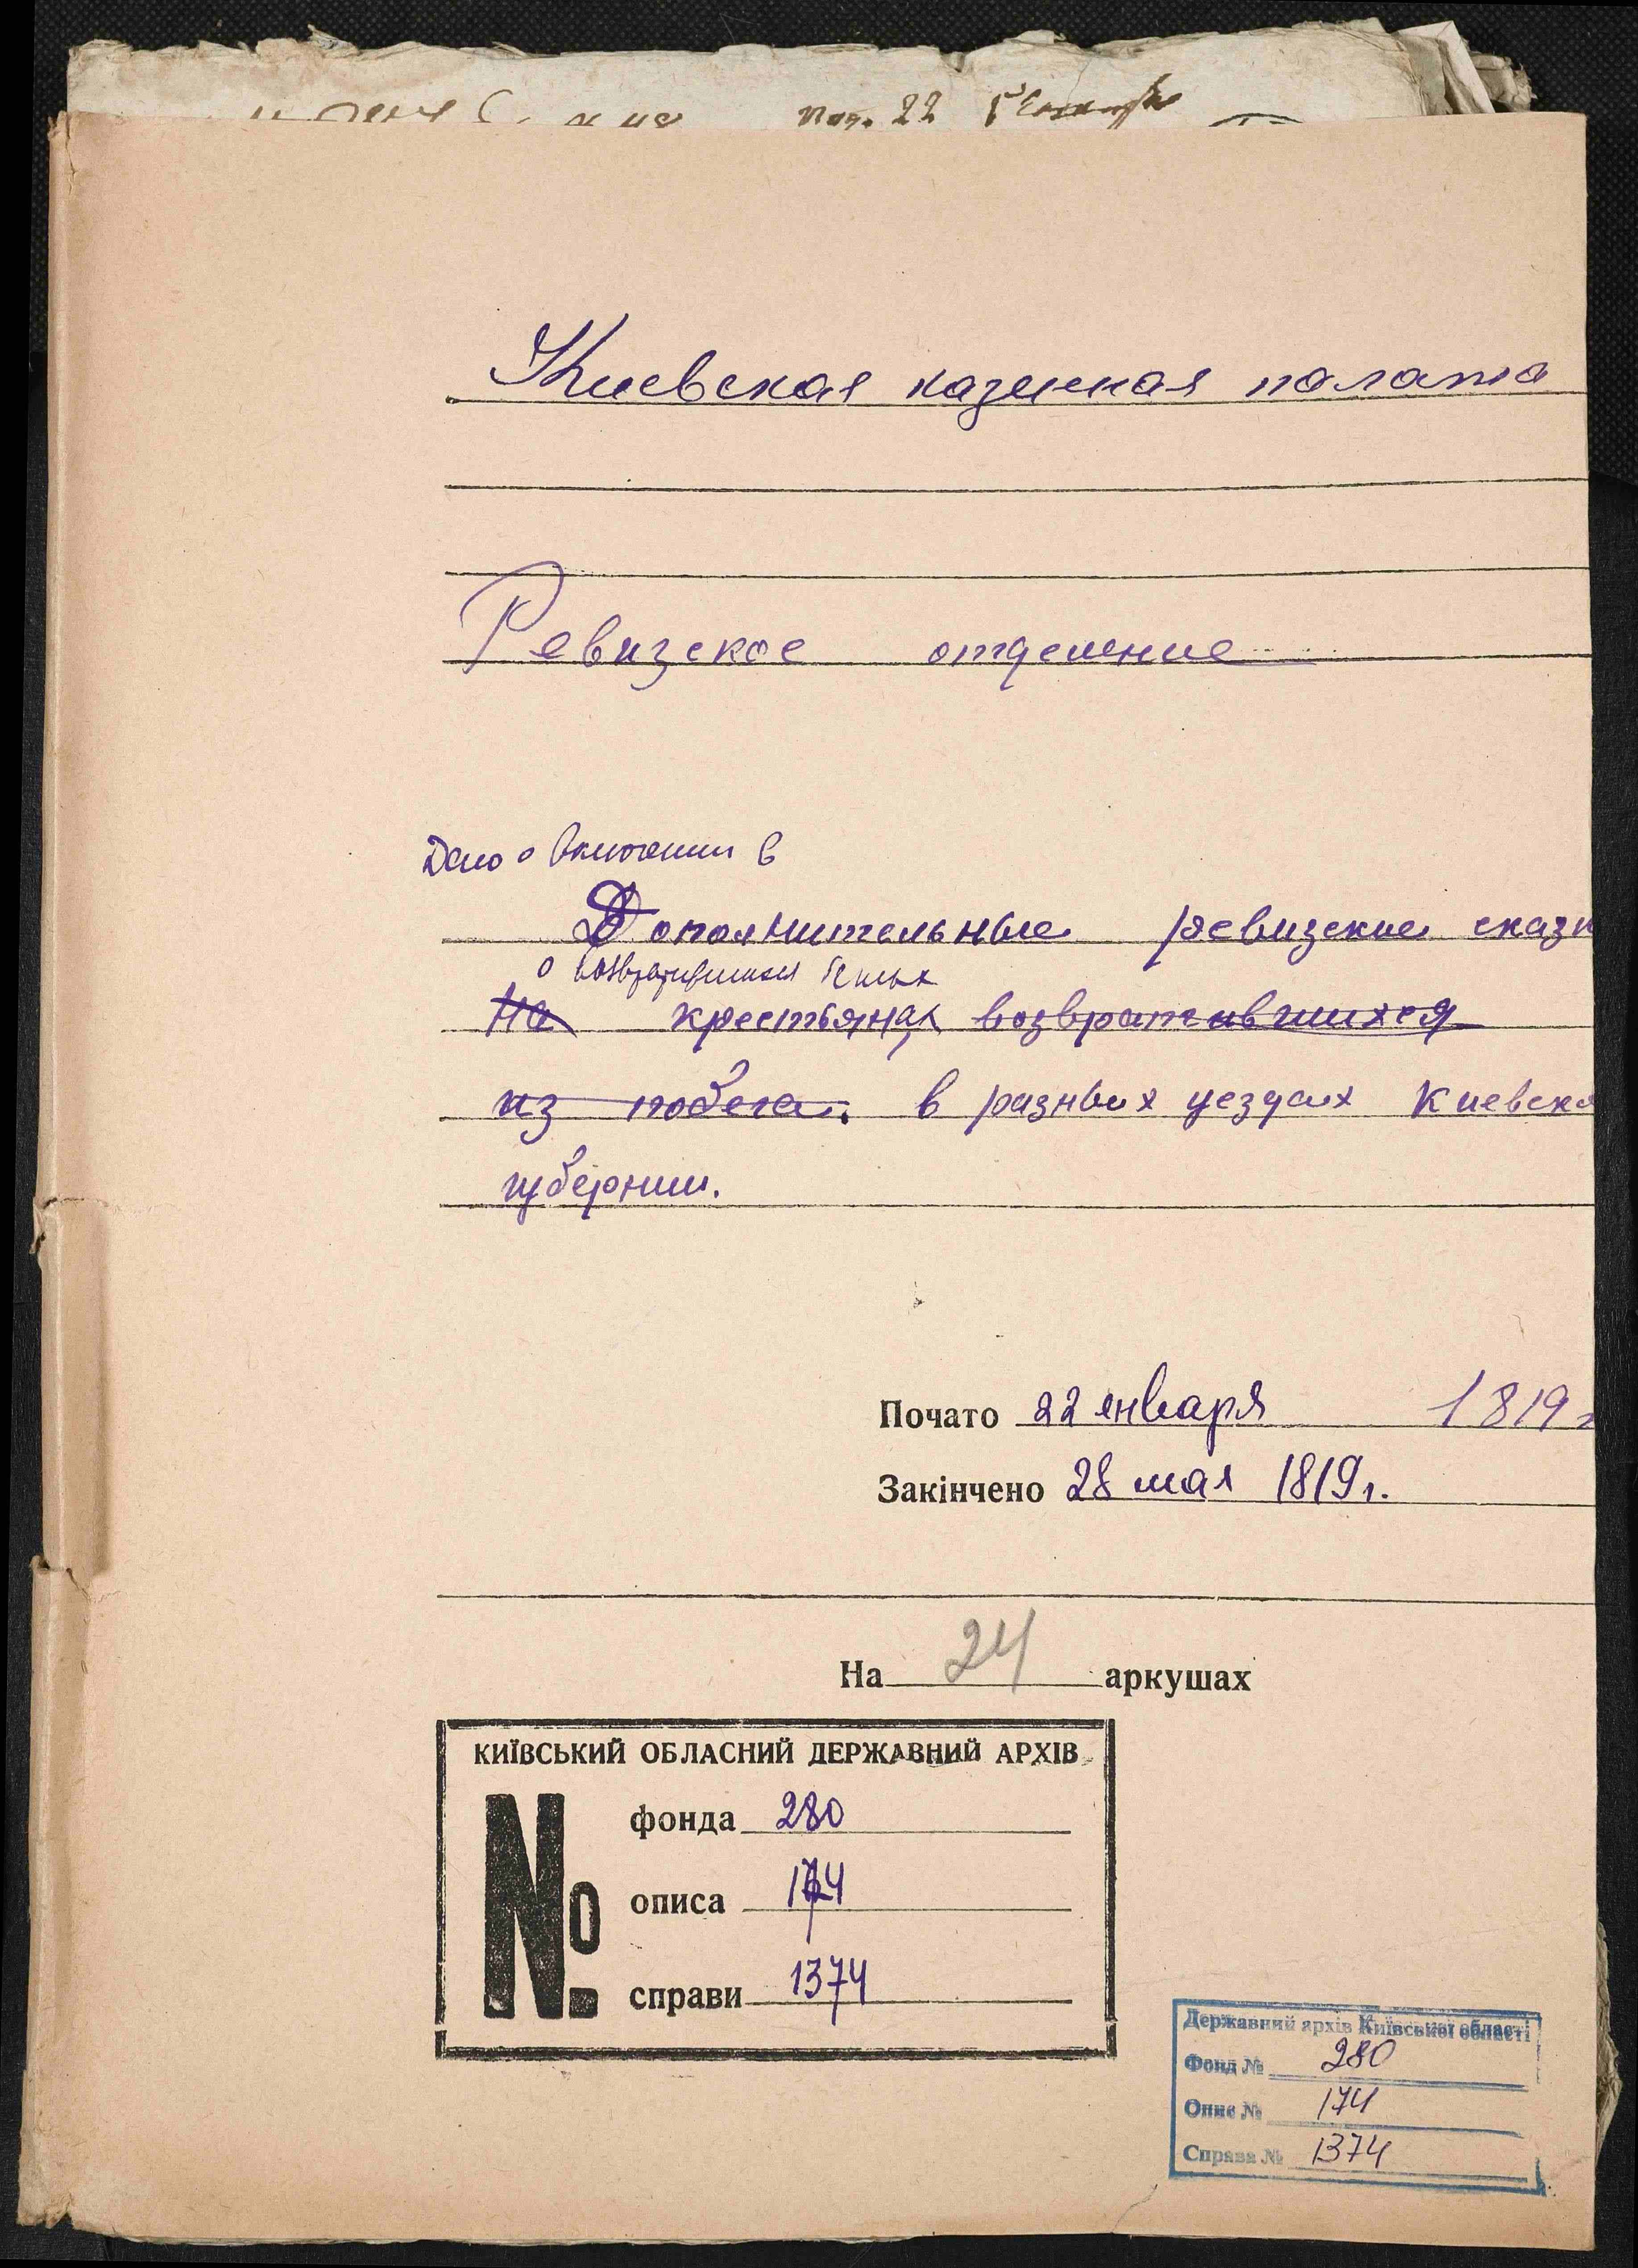 22
Киевская казенная палата
Ревизское отделение
Дело о включении в
Дополнительные ревизские сказк
о возвратившихся беглых
На крестьянах возвратившихся
из побега. в разных уездах Киевско
губернии.
Почато 22 января 1819 г
Закінчено 28 мая 1819 г.
На 24 аркушах
КИЇВСЬКИЙ ОБЛАСНИЙ ДЕРЖАВНИЙ АРХІВ
№
фонда 280
описа 174
справи 1374
Державний архів Київської області
Фонд № 280
Опис № 174
Справа № 1374